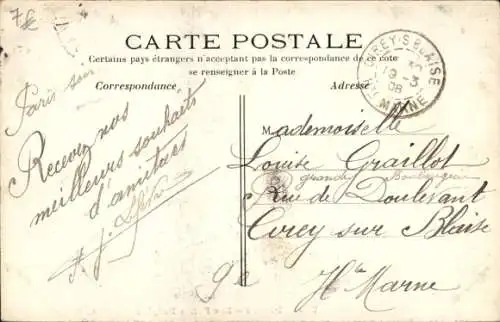 7€
CARTE POSTALE
Certains pays étrangers n'acceptant pas la correspondance de ce côté
se renseigner à la Poste
Correspondance
Adresse
CIREY-S-BLAISE
19 -3
08
Hte MARNE
Paris soir
Recevez nos
meilleurs souhaits
d'amitiés
Mademoiselle
Louise Graillot
grande
Rue de Doulevant
Cirey sur Blaise
Hte Marne